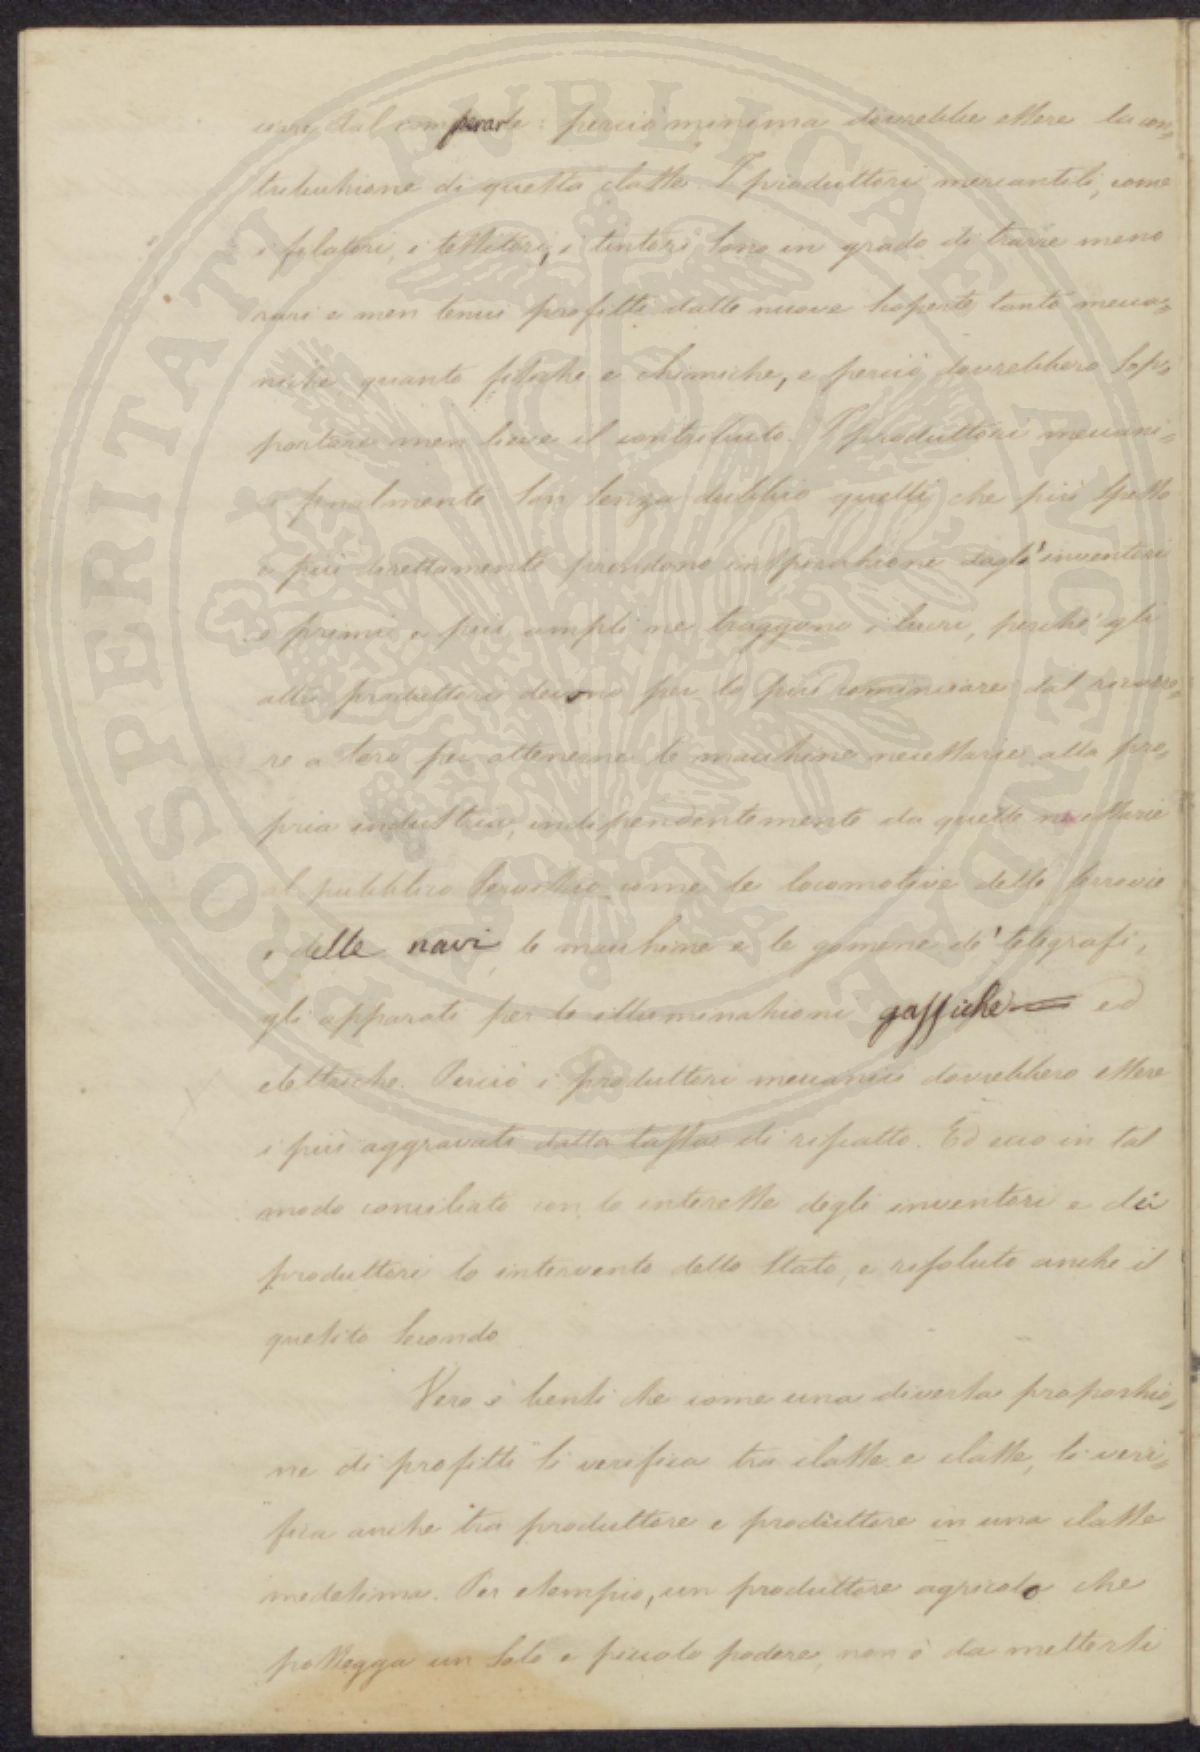 ciare dal comperarle: perciò minima dovrebbe essere la con=
tribuzione di questa classe. I produttori mercantili, come
i filatori, i tessitori, i tintori sono in grado di trarre meno
rari e men tenui profitti dalle nuove scoperte tanto mecca=
niche quanto fisiche e chimiche, e perciò dovrebbero sop=
portare men lieve il contributo. I produttori meccani=
ci finalmente son senza dubbio quelli che più spesso
e più direttamente prendono inspirazione dagl'inventori
e primi e più ampli ne traggono i lucri, perchè gli
altri produttori devono per lo più cominciare dal ricorre=
re a loro per ottenerne le macchine necessarie alla pro=
pria industria, indipendentemente da quelle necessarie
al pubblico servizio come le locomotive delle ferrovie
e delle navi, le macchine e le gomene de' telegrafi,
gli apparati per le illuminazioni gassiche ed
elettriche. Perciò i produttori meccanici dovrebbero essere
i più aggravati dalla tassa di riscatto. Ed ecco in tal
modo conciliato con lo interesse degli inventori e dei
produttori lo intervento dello Stato, e risoluto anche il
quesito secondo
Vero è bensì che come una diversa proporzio=
ne di profitti si verifica tra classe e classe, si veri=
fica anche tra produttore e produttore in una classe
medesima. Per esempio, un produttore agricolo che
possegga un solo e piccolo podere, non è da mettersi
PROSPERITATI PUBLICAE AUGENDAE